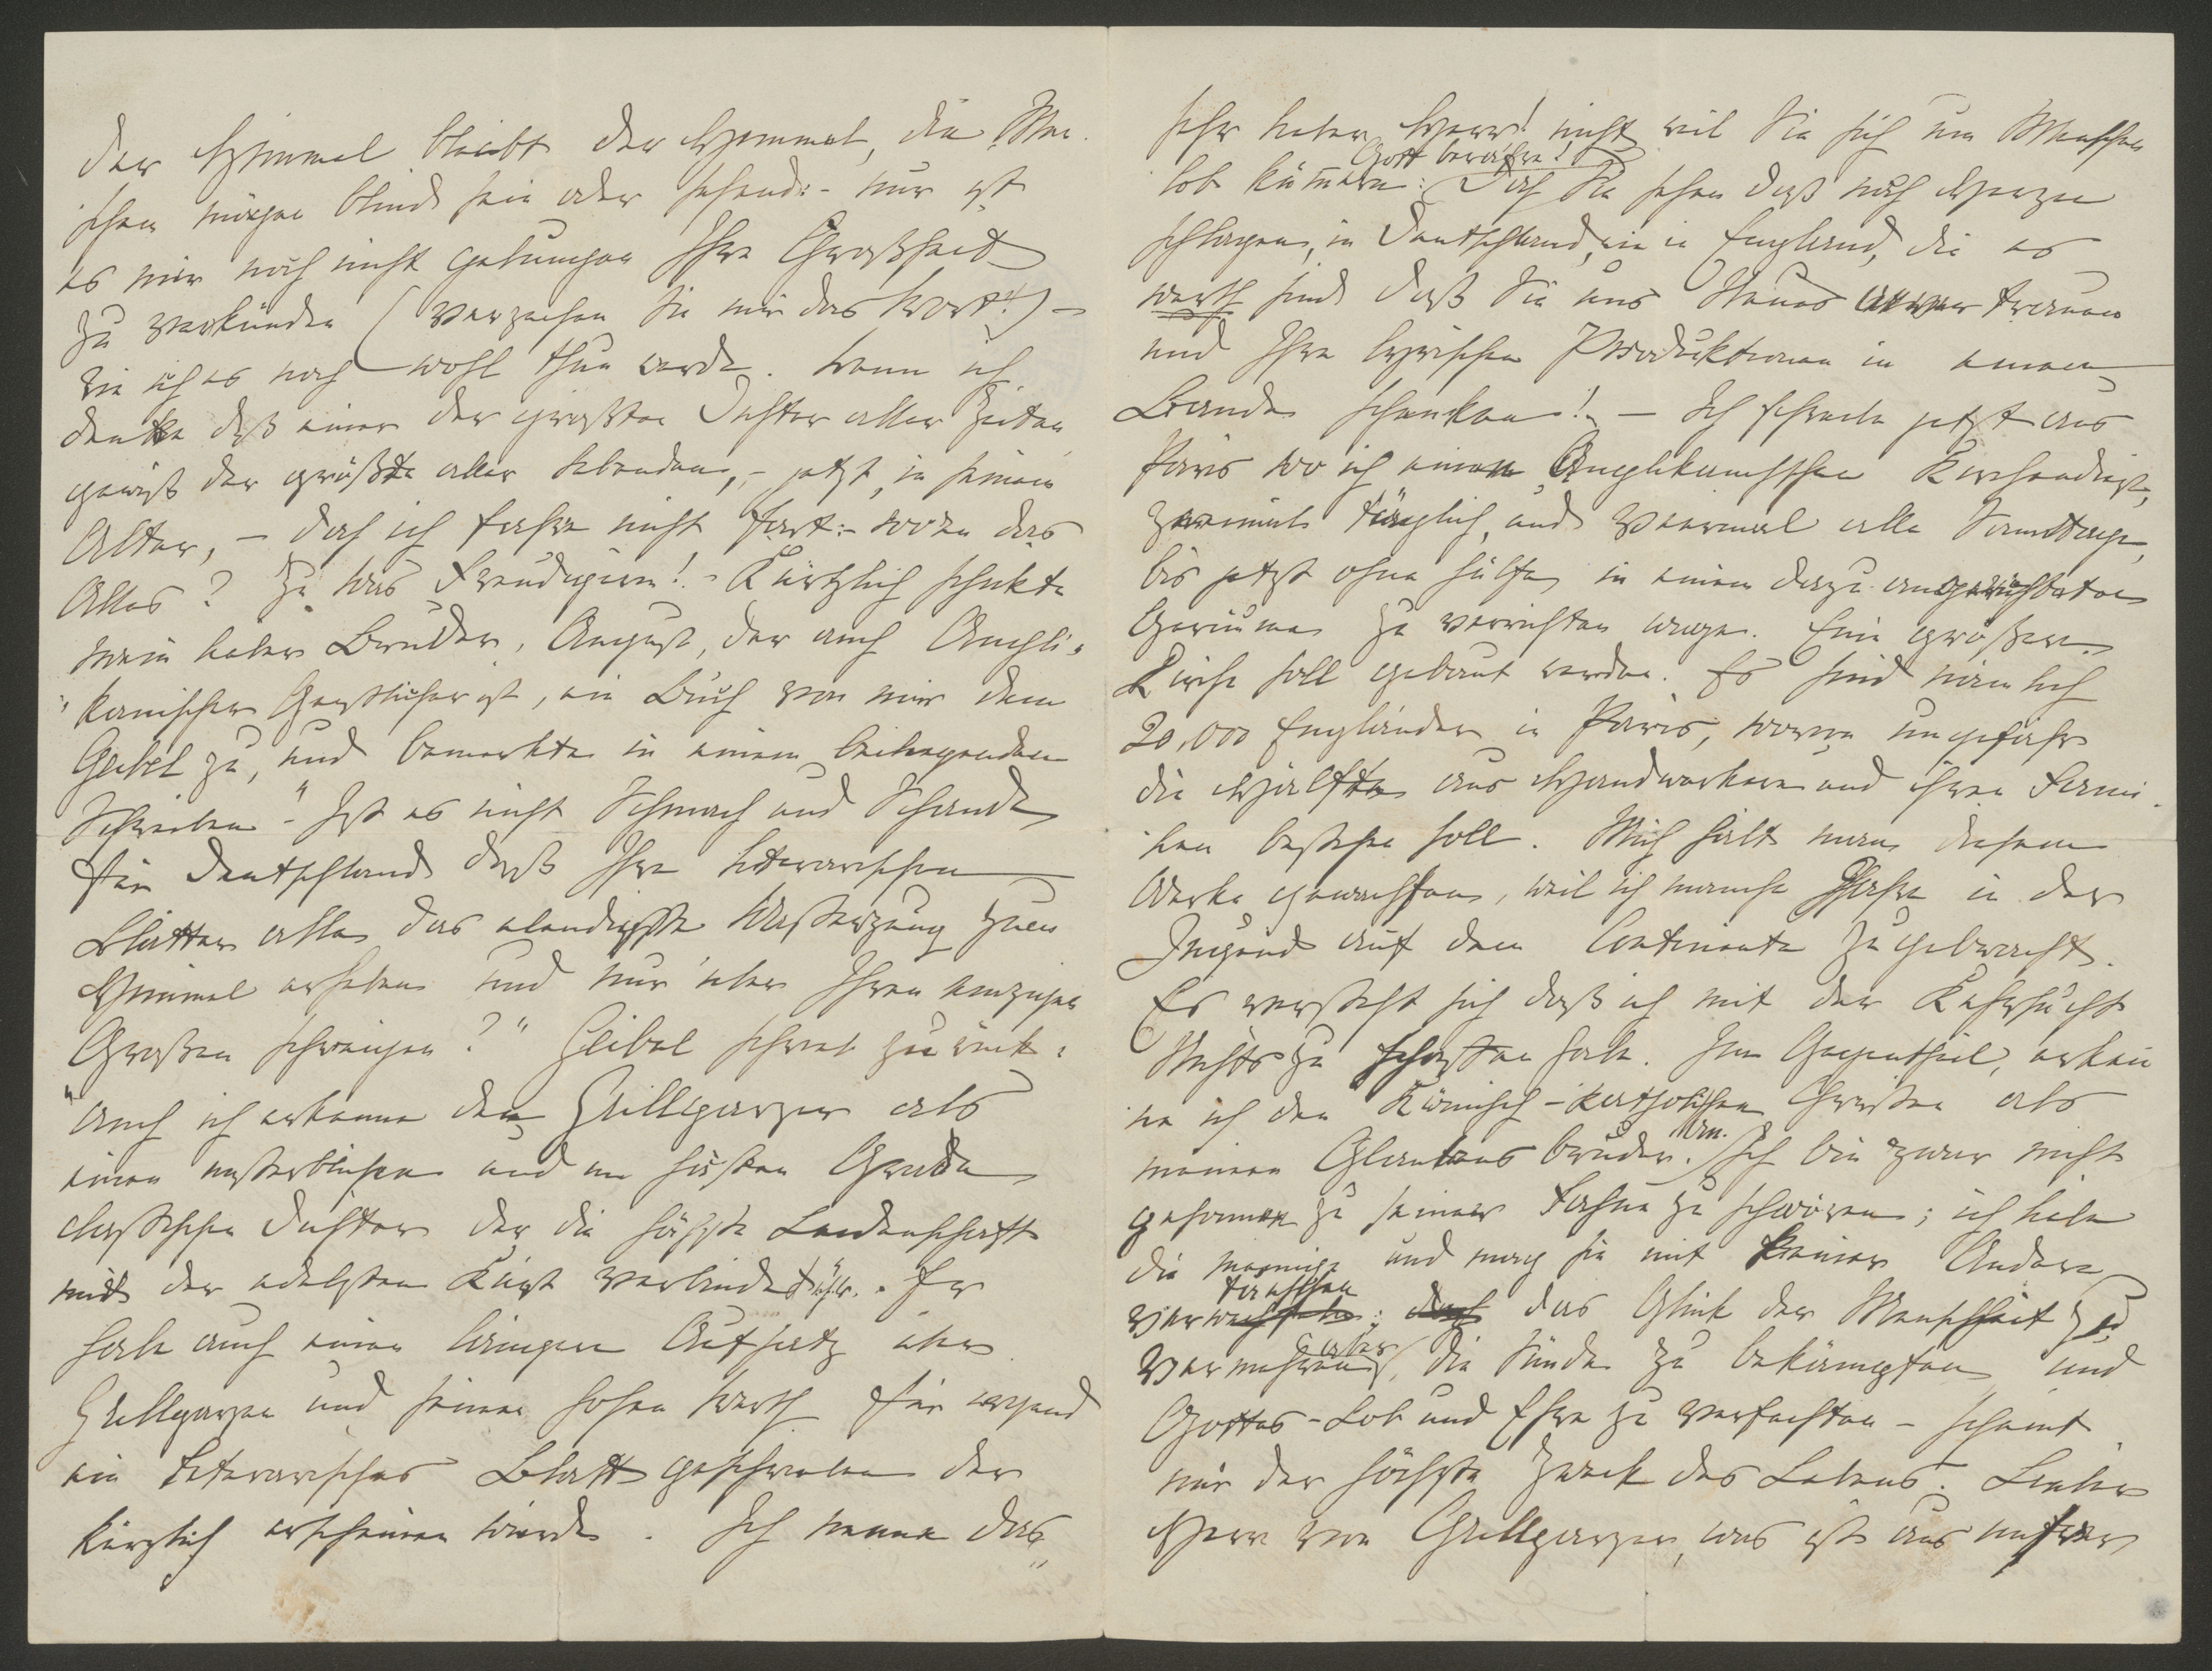 der Himmel bleibt der Himmel, die Men-
schen mögen blind sein oder sehend:- nur ist
es mir noch nicht gelungen Ihre Großheit
zu verkünden (verzeihen Sie mir das Wort!) -
wie ich es noch wohl thun werde. Wenn ich
denke daß einer der größten Dichter aller Zeiten,
gewiß der größte aller Lebenden, - jetzt, in seinem
Alter, - doch ich fahre nicht fort:- wozu das
Alles? Zu was Freudigerm! - Kürtzlich schickte
mein lieber Bruder, August, der auch Angli-
kanischer Geistlicher ist, ein Buch von mir dem
Geibel zu, und bemerkte in einem beiliegenden
Schreiben - "Ist es nicht Schmach und Schande
für Deutschland daß Ihre literarischen
Blätter alles das elendigste zum
Himmel erheben und nur über Ihren einzigen
Großen schweigen?" Geibel schrieb zurück:
"Auch ich erkenne den Grillparzer als
einen unsterblichen und im höchsten Grade
classischen Dichter der die höchste Leidenschaft
mit der edelsten Kunst verbindet &c. Er
habe auch einen längern Aufsatz über
Grillparzer und seinen hohen Werth für irgend
ein literarisches Blatt geschrieben der
kürzlich erscheinen würde. Ich nenne das
Sehr lieber Herr! nicht weil Sie sich um Menschen
lob kümmern: Gott bewahre! Doch Sie sehen daß noch Herzen
schlagen, in Deutschland, wie in England, die es
werth sind daß Sie uns Neues anvertrauen
und Ihre lyrischen Produktionen in einem
Bande schenken! - Ich schreibe jetzt aus
Paris wo ich einen Anglikanischen Kirchendienst,
zweimal täglich, und viermal alle Sonntage,
bis jetzt ohne Hülfe, in einem dazu eingerichteten
Geräume zu verrichten wage. Eine größere
Kirche soll gebaut werden. Es sind nämlich
20,000 Engländer in Paris, wovon ungefähr
die Hälfte aus Handwerkern und ihren Fami-
lien bestehen soll. Mich hält man diesem
Werke gewachsen, weil ich manche Jahre in der
Jugend auf dem Continente zugebracht.
Es versteht sich daß ich mit der Kehrsucht
Nichts zu schaffen habe. Im Gegentheil, erken
ne ich den Römisch-katholischen Christen als
meinen Glaubensbruder an. Ich bin zwar nicht
gesonnen zu seiner Fahne zu schwören; ich habe
die meinige und mag sie mit keiner Andern
vertauschen; das Glück der Menschheit zu
vermehren aber, die Sünde zu bekämpfen und
Gottes-Lob und Ehre zu verfechten - scheint
mir der höchste Zweck des Lebens. Lieber
Herr von Grillparzer, was ist aus unsrer